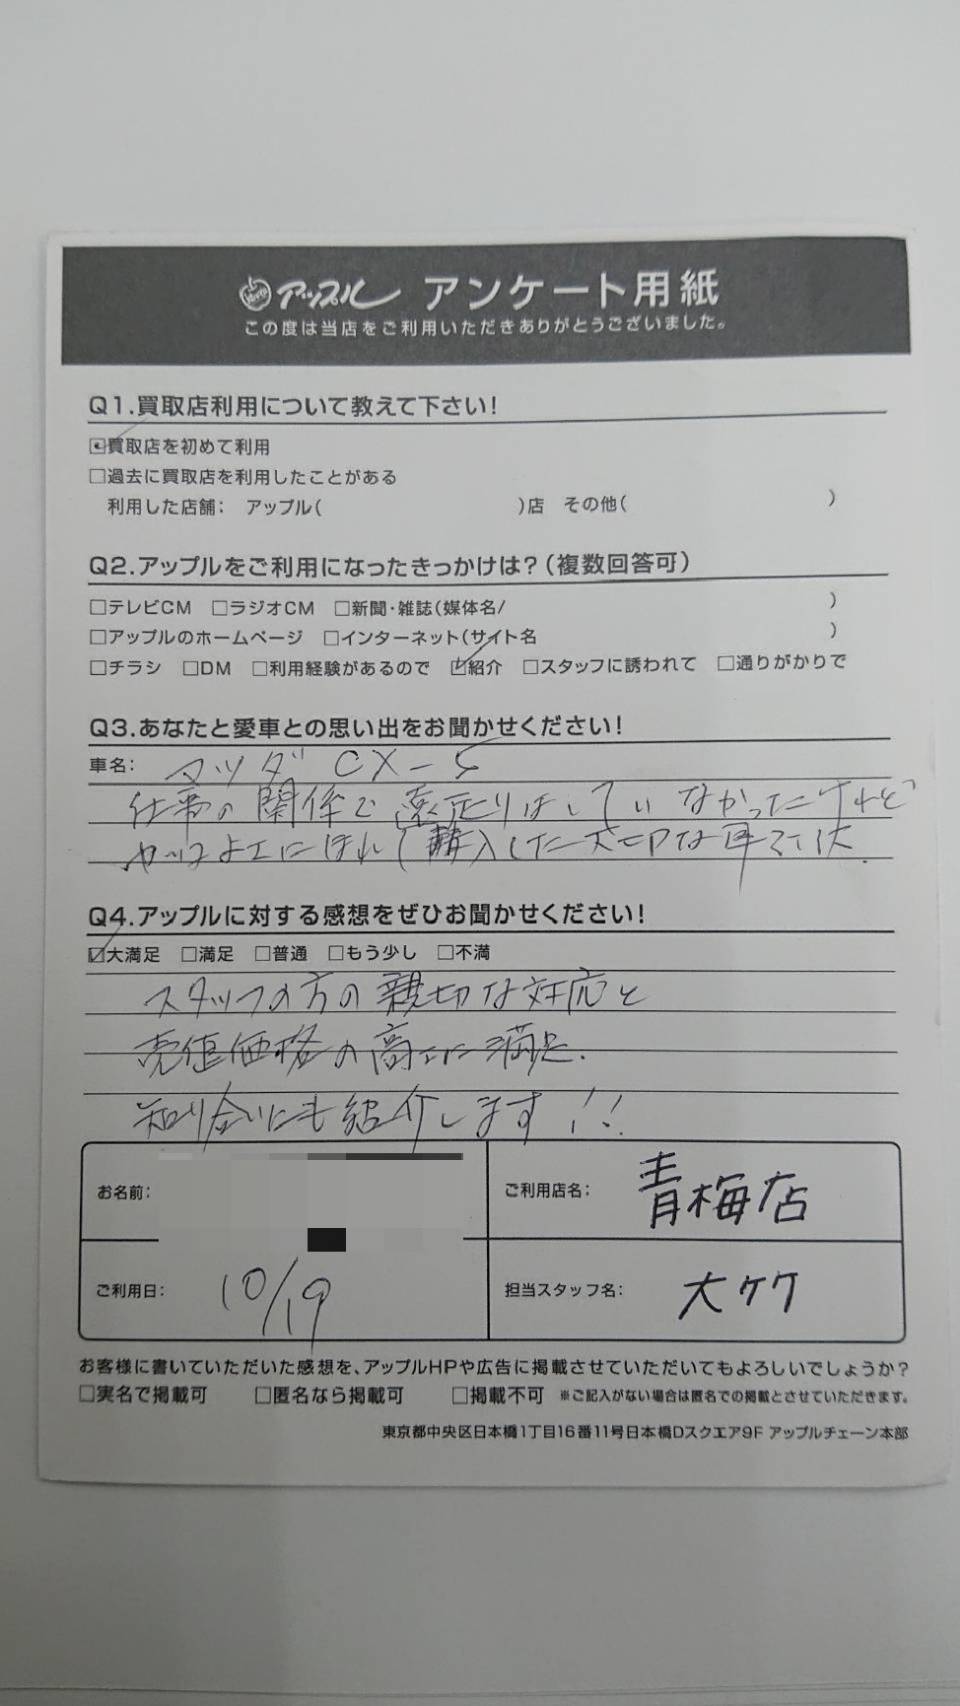 アップル アンケート用紙
この度は当店をご利用いただきありがとうございました。
Q1.買取店利用について教えて下さい!
☑買取店を初めて利用
□過去に買取店を利用したことがある
利用した店舗: アップル( )店 その他( )
Q2.アップルをご利用になったきっかけは?(複数回答可)
□テレビCM □ラジオCM □新聞・雑誌(媒体名/ )
□アップルのホームページ □インターネット(サイト名 )
□チラシ □DM □利用経験があるので ☑紹介 □スタッフに誘われて □通りがかりで
Q3.あなたと愛車との思い出をお聞かせください!
車名: マツダ CX-5
仕事の関係で遠走りはしていなかったけれど
カッコよさにほれ 購入した大切な車でした.
Q4.アップルに対する感想をぜひお聞かせください!
☑大満足 □満足 □普通 □もう少し □不満
スタッフの方の親切な対応と
売値価格の高さに満足.
知り合いにも紹介します!!
お名前:
ご利用店名: 青梅店
ご利用日: 10/19
担当スタッフ名: 大ケケ
お客様に書いていただいた感想を、アップルHPや広告に掲載させていただいてもよろしいでしょうか?
□実名で掲載可 □匿名なら掲載可 □掲載不可 ※ご記入がない場合は匿名での掲載とさせていただきます。
東京都中央区日本橋1丁目16番11号日本橋Dスクエア9F アップルチェーン本部